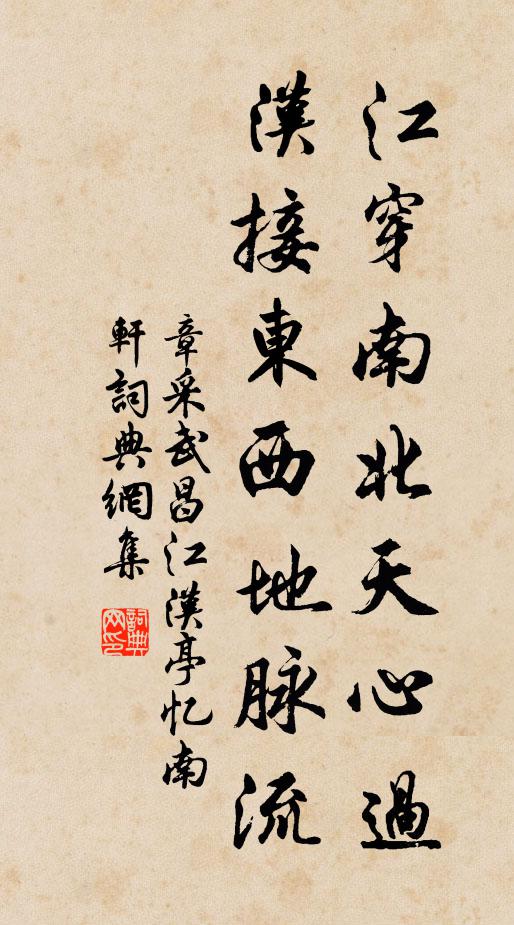 江穿南北天心過
漢接東西地脉流
章采武昌江漢亭忆南
軒詞典網集
詞典
网印